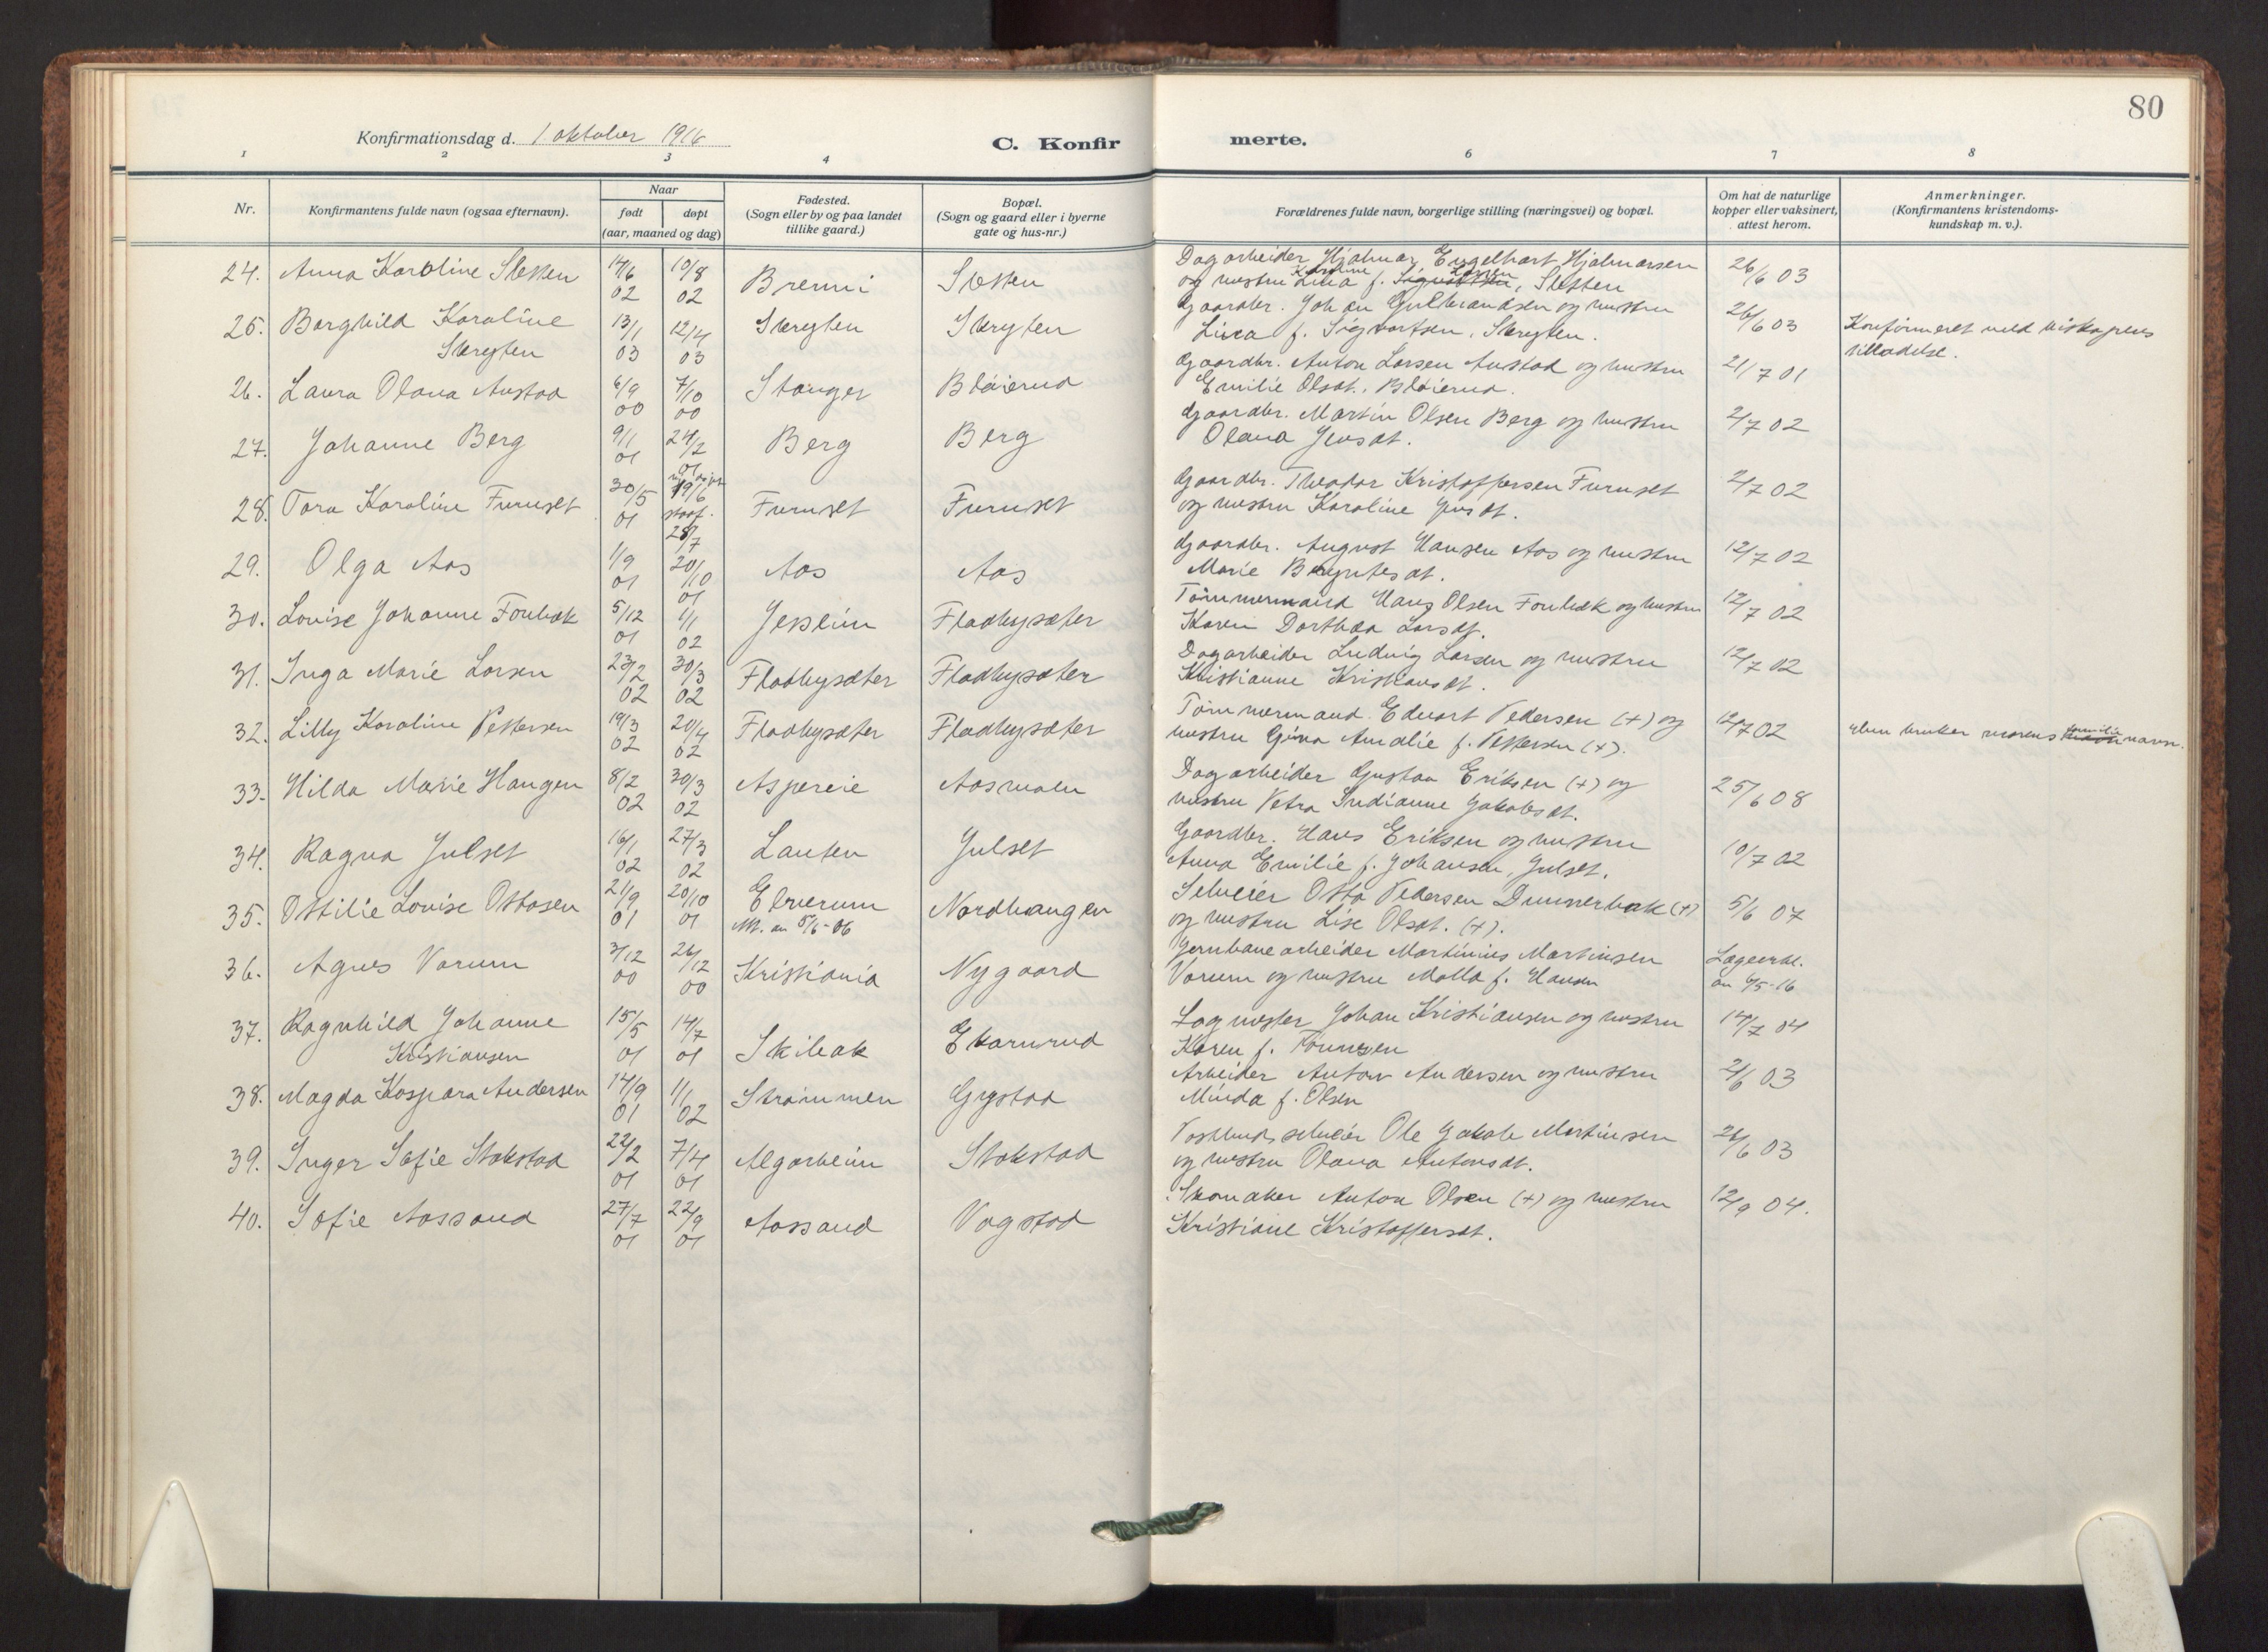 80
Konfirmationsdag d. 1 oktober 1916
C. Konfirmerte.
1 2 3 4 6 7 8
Nr.
Konfirmantens fulde navn (ogsaa efternavn).
Naar
født døpt
(aar, maaned og dag)
Fødested.
(Sogn eller by og paa landet
tillike gaard.)
Bopæl.
(Sogn og gaard eller i byerne
gate og hus-nr.)
Forældrenes fulde navn, borgerlige stilling (næringsvei) og bopæl.
Om hat de naturlige
kopper eller vaksinert,
attest herom.
Anmerkninger.
(Konfirmantens kristendoms-
kundskap m. v.).
24. Anna Karoline Sletten 14/6 02 10/8 02 Brenni Sletten
Dagarbeider Hjalmar Engelhart Hjalmarsen
og hustru Karoline f. Larsen, Sletten
26/6 03
25. Borghild Karoline
Skryten 13/1 03 12/4 03 Skryten Skryten
Gaardbr. Johan Gulbrandsen og hustru
Lina f. Sigvartsen, Skryten.
26/6 03 Konfirmeret med biskopens
tilladelse.
26. Laura Olava Austad 6/9 00 7/10 00 Stanger Bløierud
Gaardbr. Anton Larsen Austad og hustru
Emilie Olsdt. Bløierud.
21/7 01
27. Johanne Berg 9/1 01 24/2 01 Berg Berg
Gaardbr. Martin Olsen Berg og hustru
Olava Jensdt.
2/7 02
28. Tora Karoline Furuset 30/5 01 19/6 stadf. 28/7 Furuset Furuset
Gaardbr. Theodor Kristoffersen Furuset
og hustru Karoline Jensdt.
2/7 02
29. Olga Aas 1/9 01 20/10 01 Aas Aas
Gaardbr. August Hansen Aas og hustru
Marie Bernntesdt.
12/7 02
30. Lovise Johanne Fonbæk 5/12 01 1/1 02 Jessheim Fladbysæter
Tømmermand Hans Olsen Fonbæk og hustru
Karen Dorthea Larsdt.
12/7 02
31. Inga Marie Larsen 23/2 02 30/3 02 Fladbysæter Fladbysæter
Dagarbeider Ludvig Larsen og hustru
Kristianne Kristiansdt.
12/7 02
32. Lilly Karoline Pettersen 19/3 02 20/4 02 Fladbysæter Fladbysæter
Tømmermand Edvart Pedersen (+) og
hustru Gina Amalie f. Pettersen (+).
12/7 02 bruker morens familienavn.
33. Hilda Marie Haugen 8/2 02 30/3 02 Aspereie Aasmoen
Dagarbeider Gustav Eriksen (+) og
hustru Petra Indianne Jakobsdt.
25/6 08
34. Ragna Julset 16/1 02 27/3 02 Lauten Julset
Gaardbr. Hans Eriksen og hustru
Anna Emilie f. Johansen, Julset.
10/7 02
35. Ottilie Lovise Ottosen 21/9 01 20/10 01 Elverum Nordhaugen
5/6-06
Selveier Otto Pedersen Dunnerbæk (+)
og hustru Lise Olsdt. (+).
5/6 07
36. Agnes Vorum 3/12 00 26/12 00 Kristiania Nygaard
Jernbanearbeider Martinius Martinsen
Vorum og hustru Molla f. Hansen
Lægeerkl.
av 6/5-16
37. Ragnhild Johanne
Kristiansen 15/5 01 14/7 01 Skibak Ekornrud
Lagmester Johan Kristiansen og hustru
Karen f. Tønnesen
14/7 04
38. Magda Kaspara Andersen 14/9 01 1/1 02 Strømmen Gystad
Arbeider Anton Andersen og hustru
Minda f. Olsen
2/6 03
39. Inger Sofie Stokstad 22/2 01 7/4 01 Algarheim Stokstad
Postbud, selveier Ole Jakob Martinsen
og hustru Olava Antonsdt.
26/6 03
40. Sofie Aassand 27/7 01 22/9 01 Aassand Vogstad
Skomaker Anton Olsen (+) og hustru
Kristiane Kristoffersdt.
12/9 04.